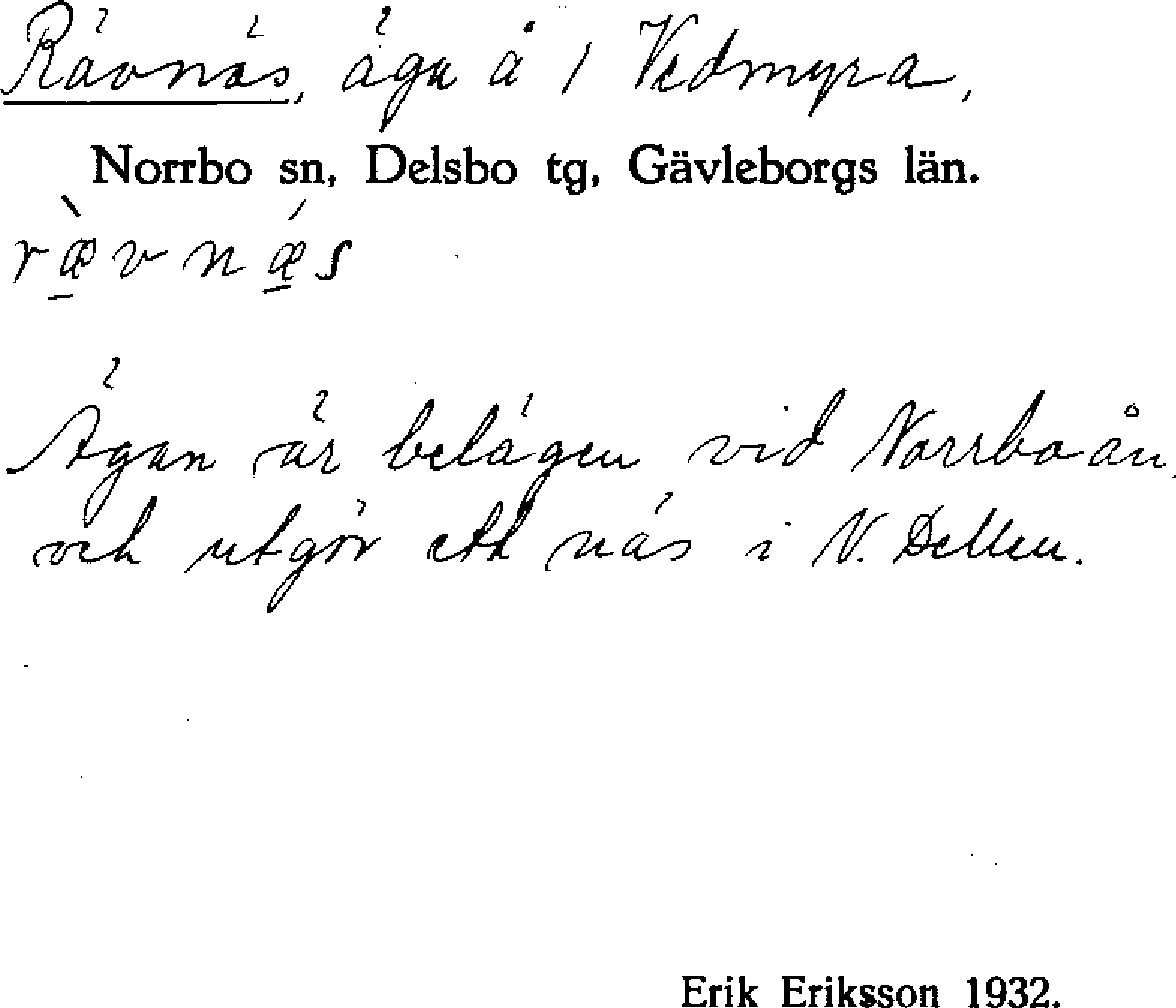 Rävnäs, äga å 1 Vedmyra,
Norrbo sn, Delsbo tg, Gävleborgs län.
ræ̠̀vnǽ̠s
Ägan är belägen vid Norrboån,
och utgör ett näs i N. Dellen.
Erik Eriksson 1932.